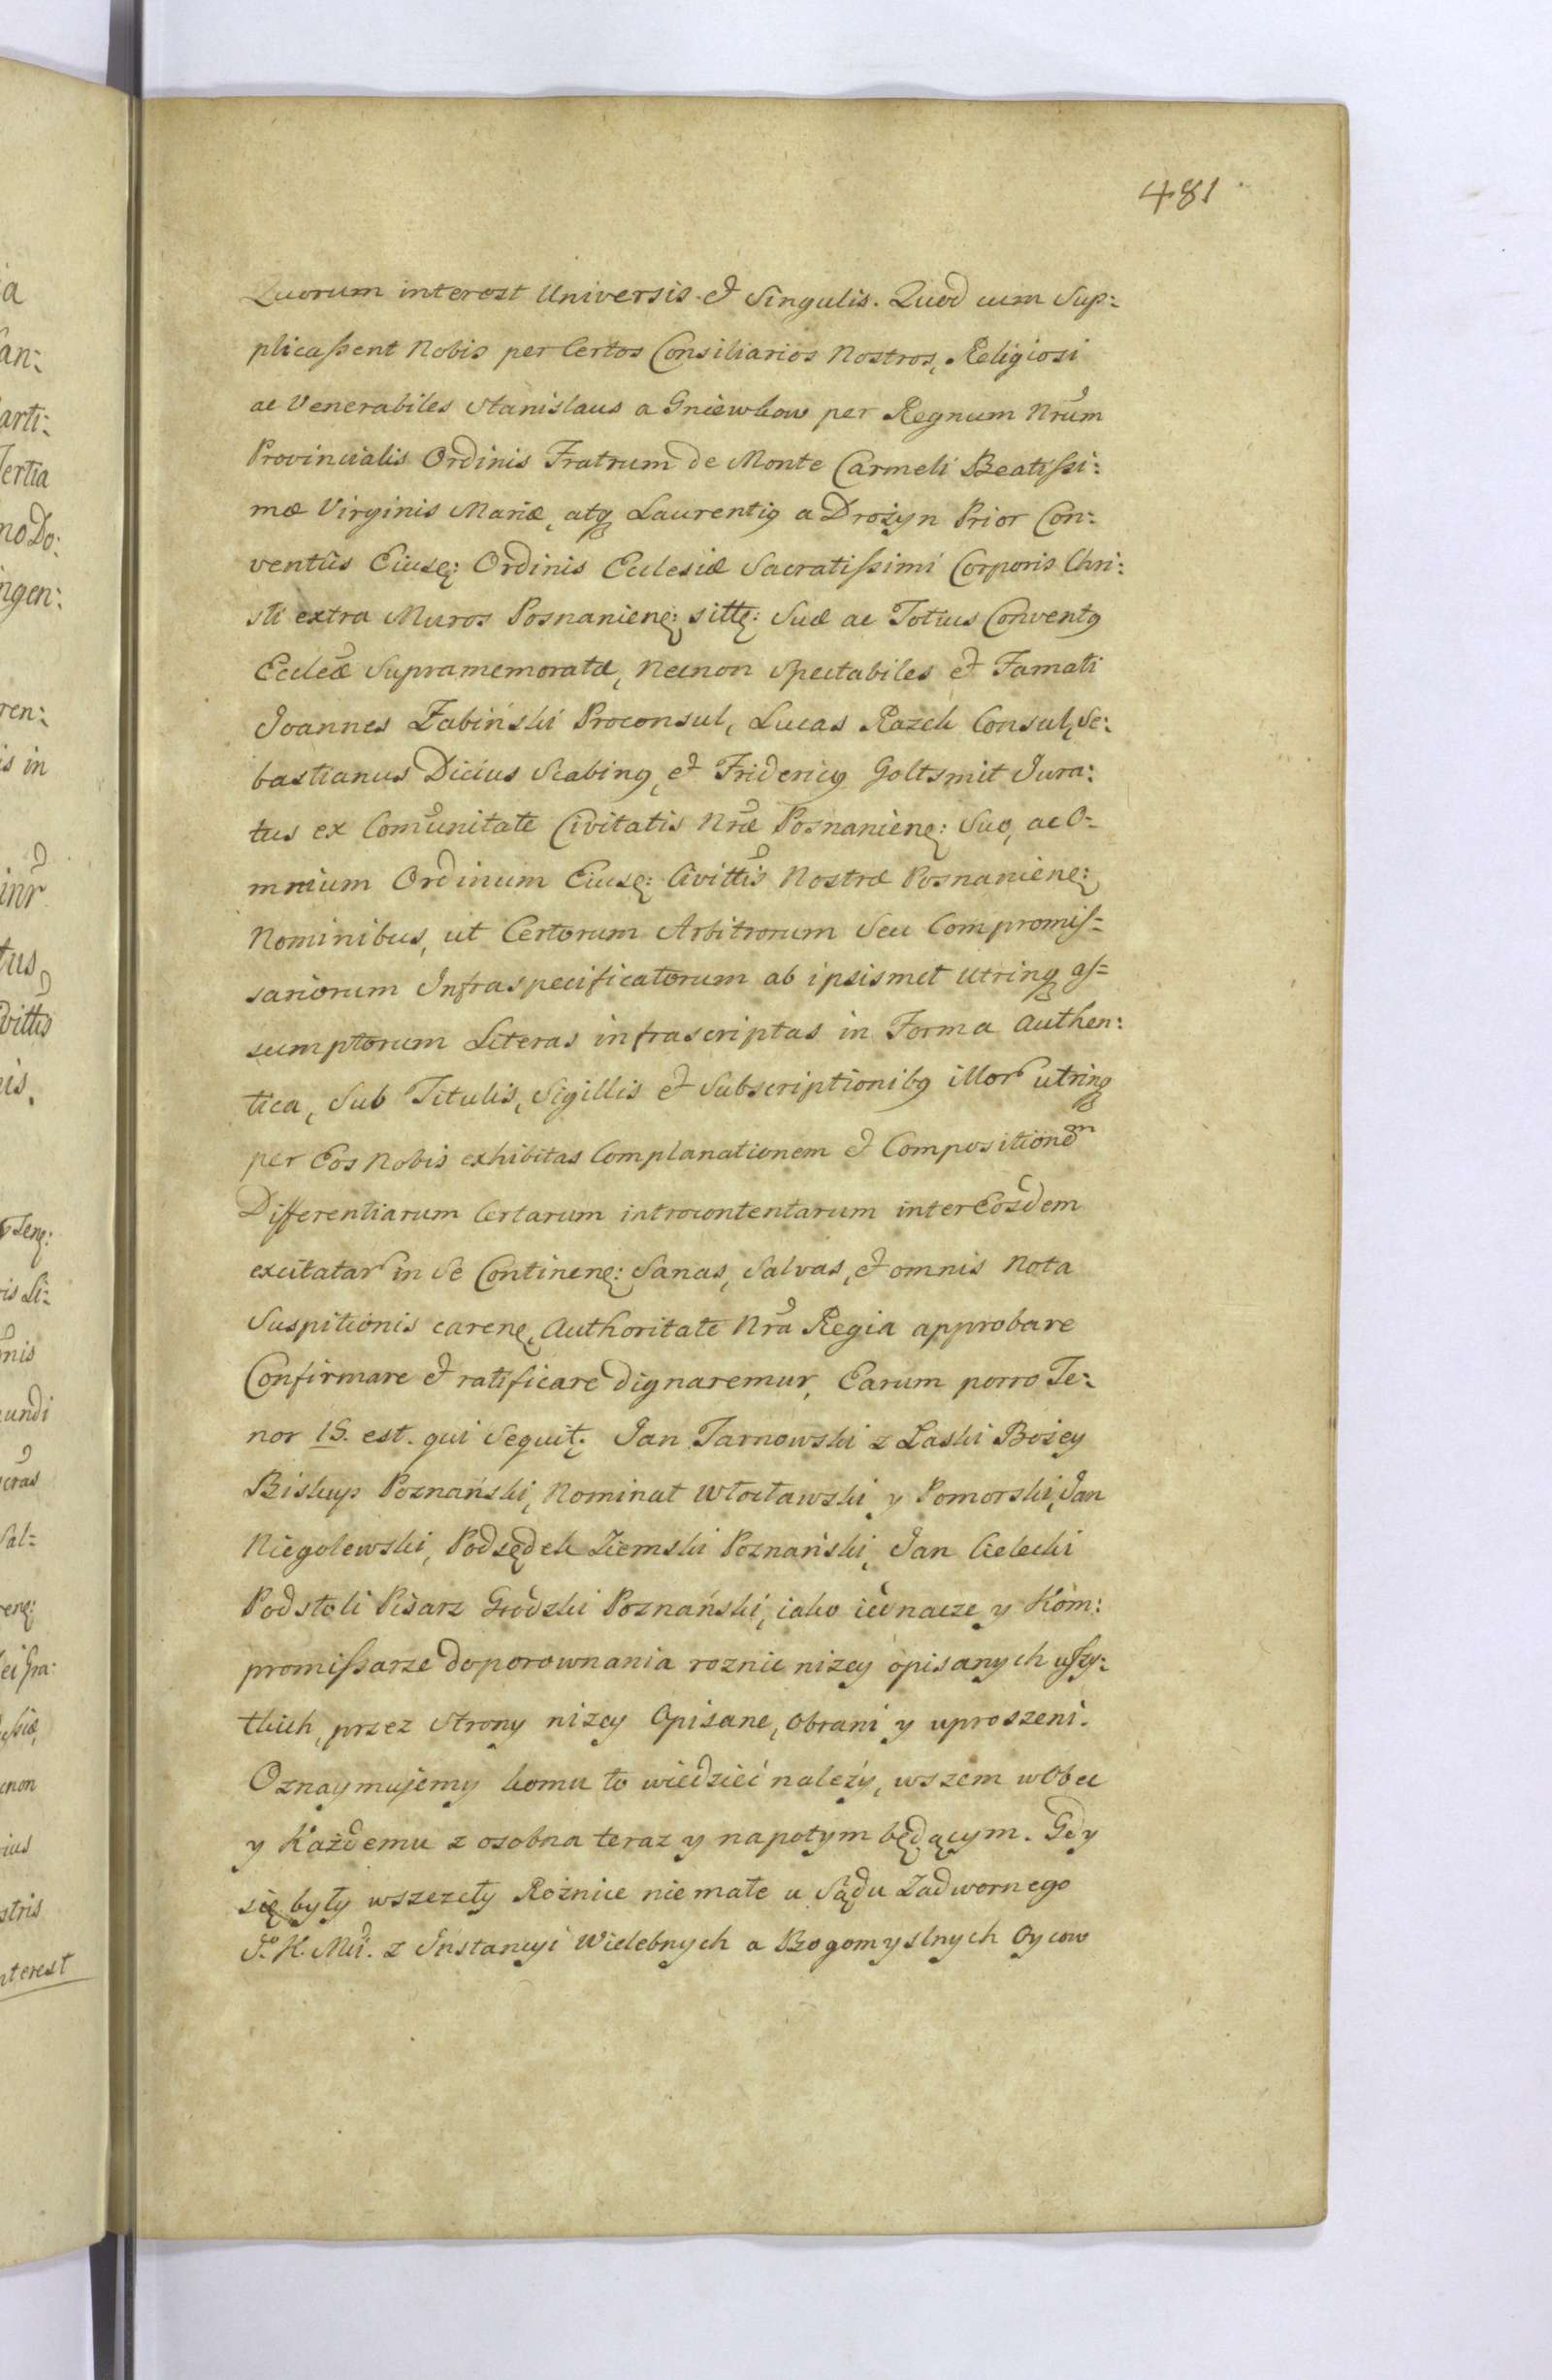 481
Quorum interest Universis et Singulis. Quod cum Sup:
plicaſsent Nobis per Certos Consiliarios Nostros, Religiosi
ac Venerabiles Stanislaus a Gniewkow per Regnum Nrum
Provincialis Ordinis Fratrum de Monte Carmeli Beatiſsi:
mæ Virginis Mariæ, atq Laurentig a Drożyn Prior Con:
ventûs Eiusę: Ordinis Ecclesiæ Sacratiſsimi Corporis Chri:
sti extra Muros Posnanienę: sittę: Suæ ac Totius Conventg
Eccleæ Supramemoratæ, Necnon Spectabiles et Famati
Joannes Żabiński Proconsul, Lucas Razek Consul, Se:
bastianus Dicius Scabing, et Fridericg Goltsmit Jura:
tus ex Comunitate Civitatis Nræ Posnanienę: Suo, ac O:
mnium Ordinum Eiusę: Civittis Nostræ Posnanienę:
Nominibus, ut Certorum Arbitrorum Seu Compromiſ=
sariorum Infraspecificatorum ab ipsismet utrinq aſ=
sumptorum Literas infrascriptas in Forma Authen:
tica, Sub Titulis, Sigillis et Subscriptionibg illor utrinq
per Eos Nobis exhibitas Complanationem et Compositionem
Differentiarum Certarum introcontentarum inter Eosdem
excitatar in Se Continenę: Sanas, Salvas, et omnis Nota
Suspitionis carenę, Authoritate Nra Regia approbare
Confirmare et ratificare dignaremur, Earum porro Te:
nor IS. est. qui Sequitę. Jan Tarnowski z Laski Bożey
Biskup Poznański, Nominat Włocławski y Pomorski, Jan
Niegolewski, Podsędek Ziemski Poznański, Jan Cielecki
Podstoli Pisarz Grodzki Poznański, iako iednacze y Kom:
promiſsarze do porownania roznic niżey opisanych wſzy:
tkich, przez Strony niżey Opisane, Obrani y uproszeni.
Oznaymujemy komu to wiedzieć należy, wszem wObec
y Każdemu z osobna teraz y napotym będącym. Gdy
się były wszczęły Rożnice nie małe u Sądu Zadwornego
Jo. K. Mci. z Instancyi Wielebnych a Bogomyslnych Oycow